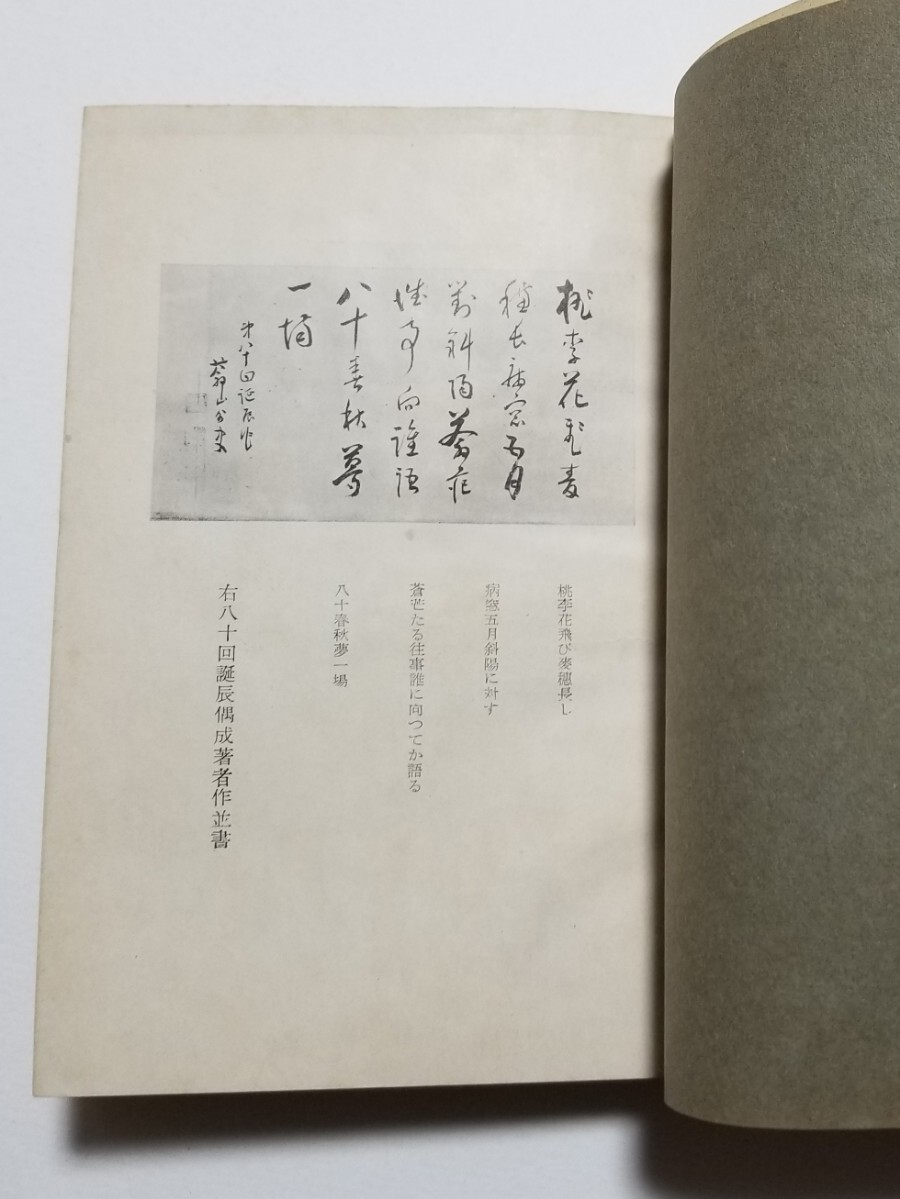 桃李花飛麦
穂長病窓五月
対斜陽蒼茫
往事向誰語
八十春秋夢
一場
第八十回誕辰作
桃李花飛び麥穗長し
病窓五月斜陽に対す
蒼茫たる往事誰に向つてか語る
八十春秋夢一場
右八十回誕辰偶成著者作並書